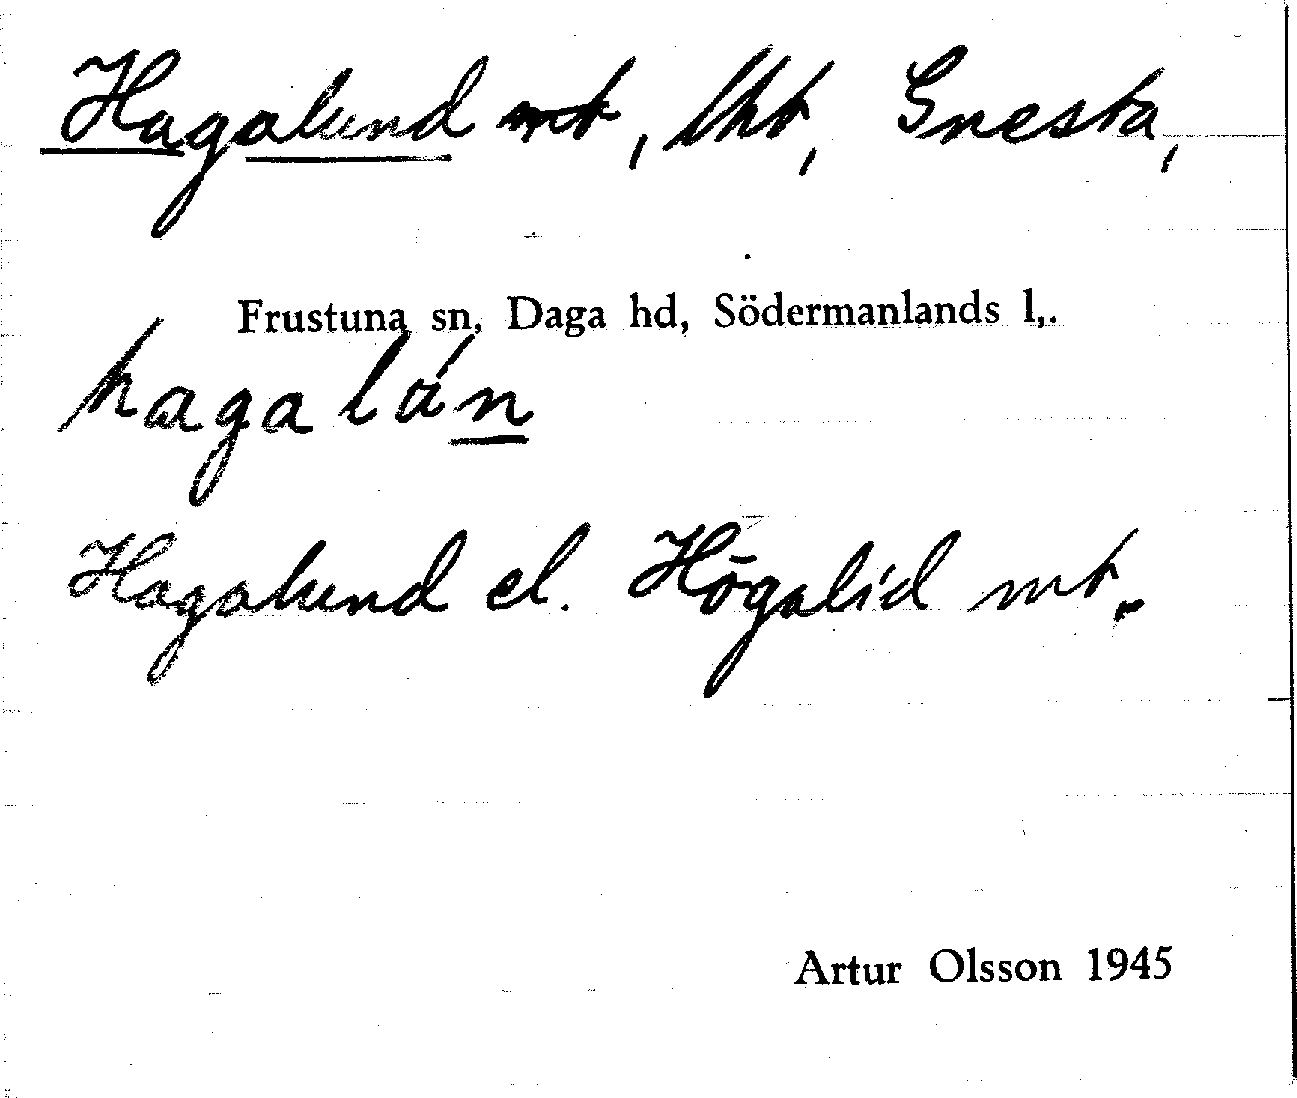 Hagalund mt, lht, Gnesta,
Frustuna sn, Daga hd, Södermanlands l,.
hagalún
Hagalund el. Högalid mt.
Artur Olsson 1945